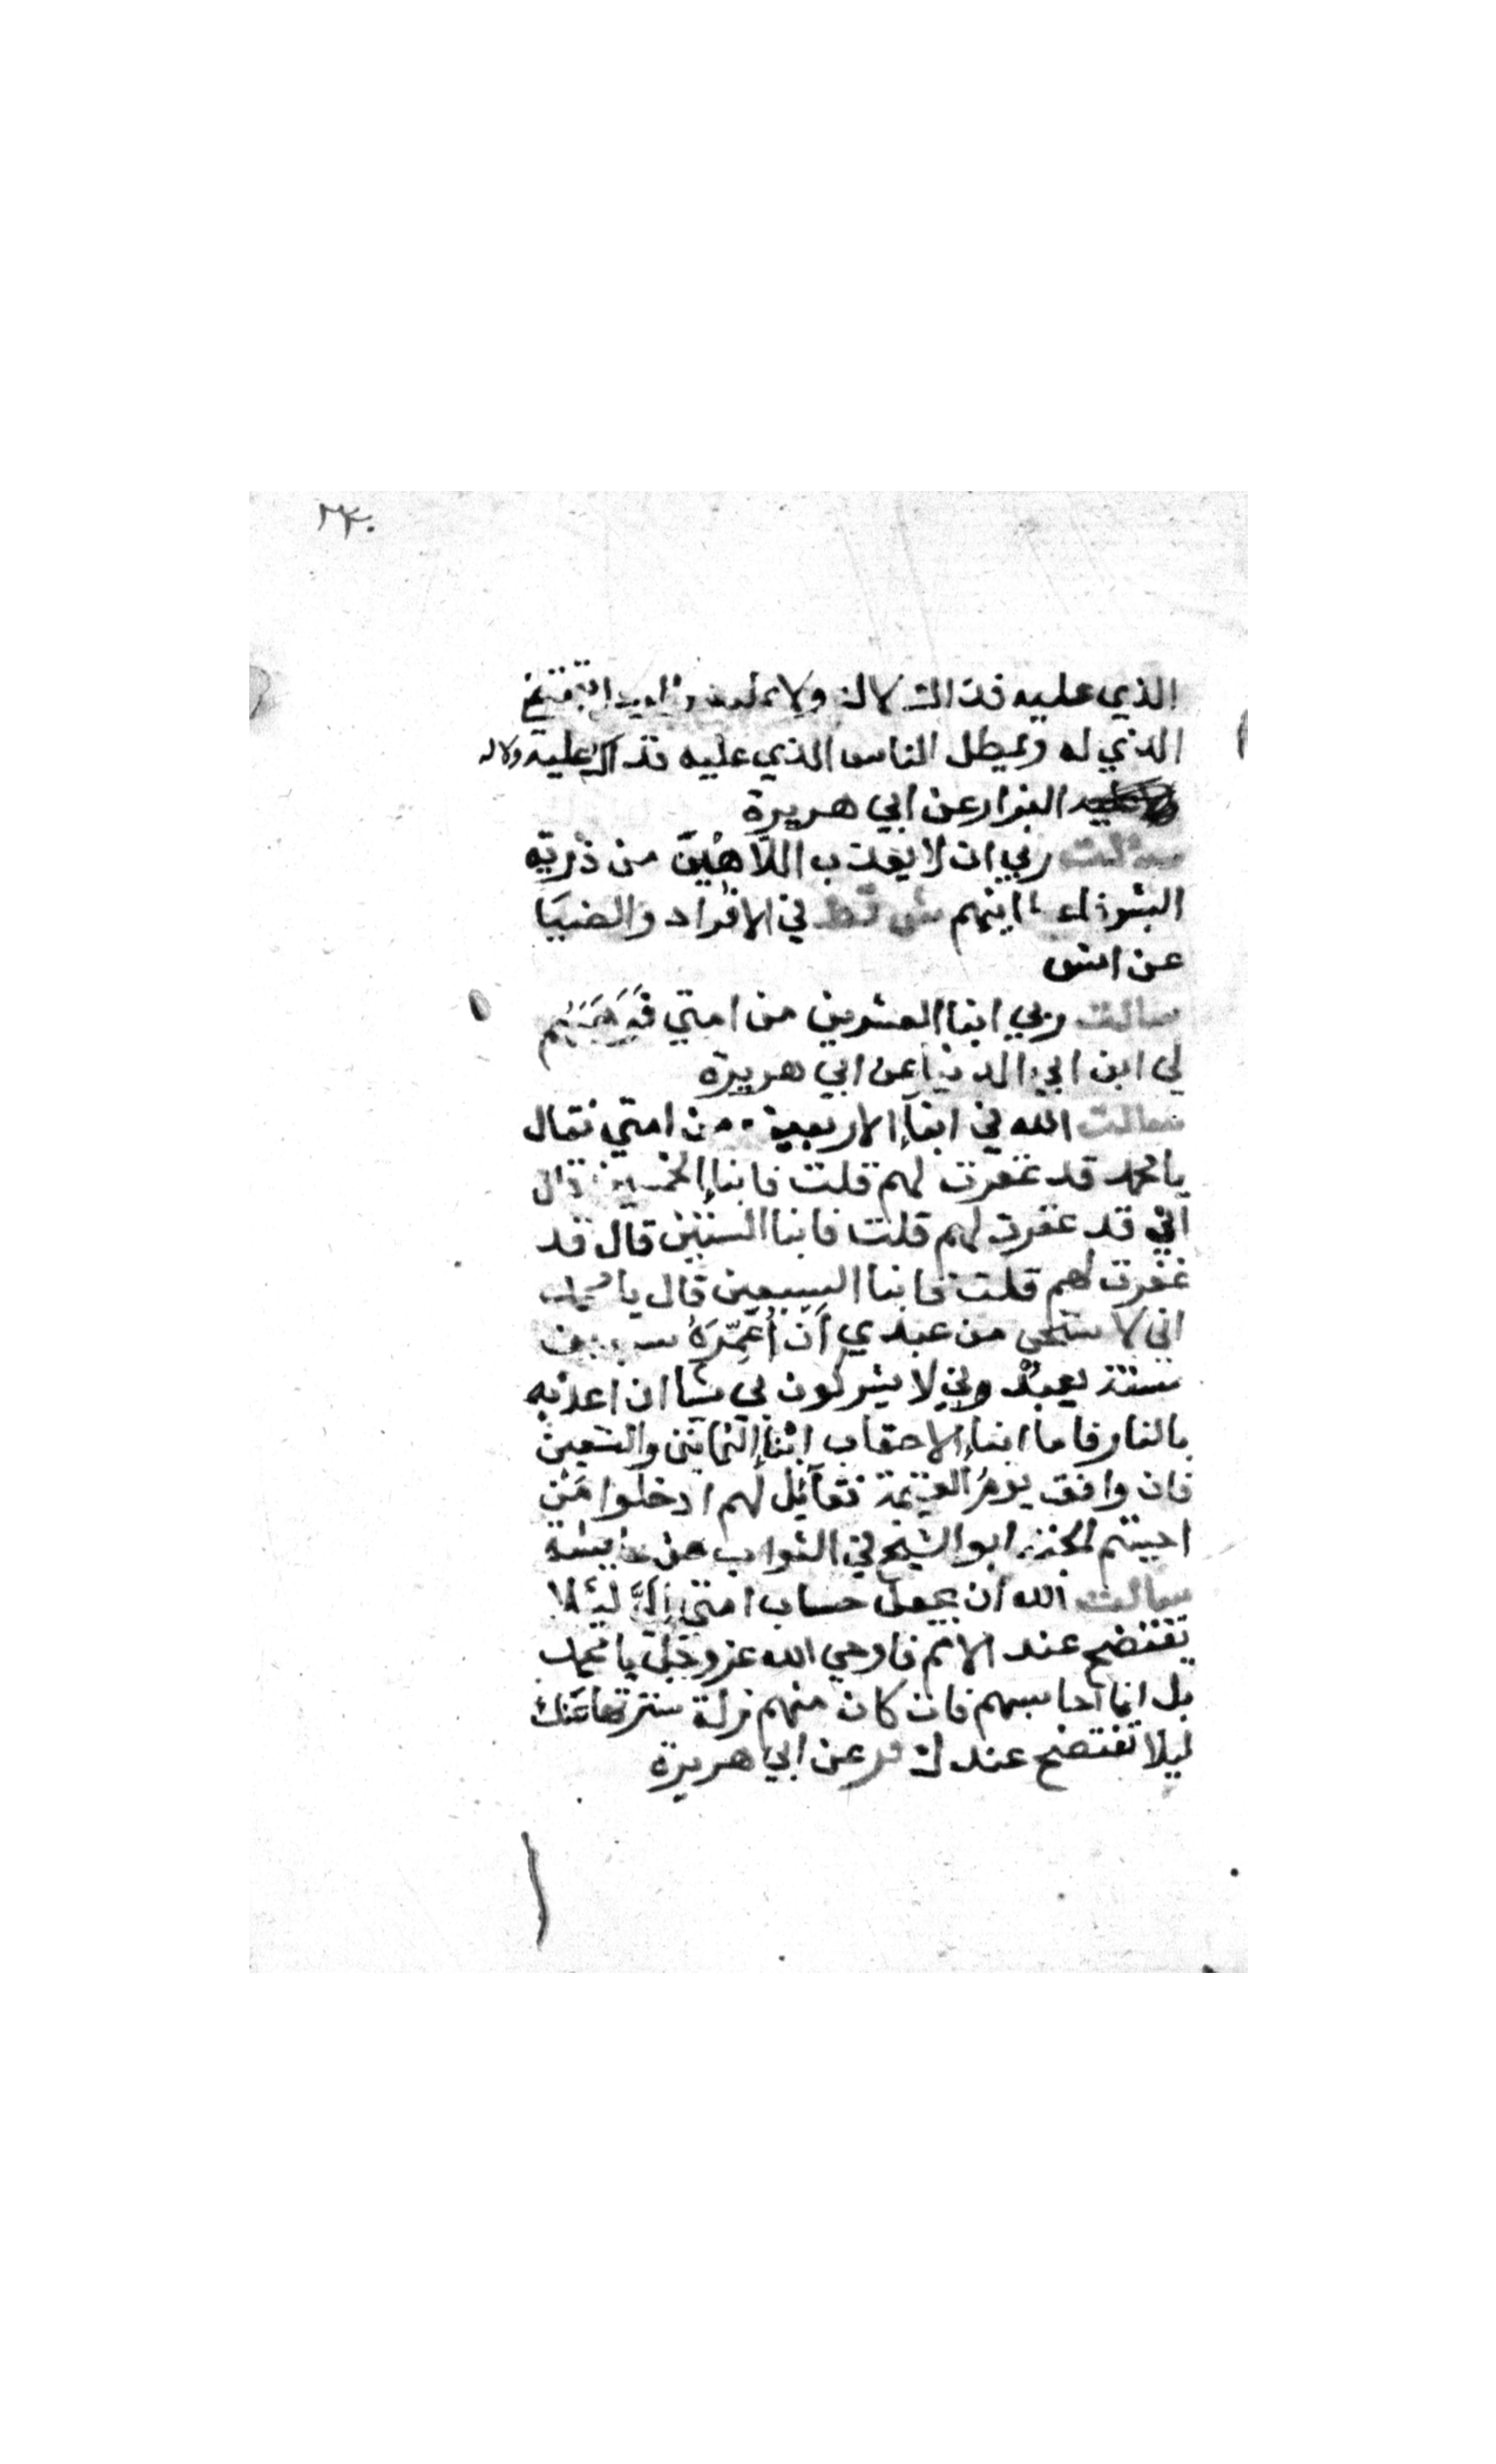 ٢٣٠
الذي عليه فذاك لا له ولا عليه يقتضي
الذي له ويمطل الناس الذي عليه فذاك عليه ولا له
البزار عن ابي هريرة
سالت ربي ان لا يعذب اللاهين من ذرية
البشر فاعطانيهم ش قط في الافراد والضيا
عن انس
سالت ربي ابنا العشرين من امتي فوهبهم
لي ابن ابي الدنيا عن ابي هريرة
سالت الله في ابنا الاربعين من امتي فقال
يا محمد قد غفرت لهم قلت فابنا الخمسين قال
اني قد غفرت لهم قلت فابنا الستين قال قد
غفرت لهم قلت فابنا السبعين قال يا محمد
اني لاستحي من عبدي أن أُعَمِّرَهُ سبعين
سنة يعبدوني لا يشركون بي شيا ان اعذبه
بالنار فاما ابنا الاحقاب ابنا الثمانين والتسعين
فان واقف يوم القيمة فقائل لهم ادخلوا مَن
احببتم الجنة ابو الشيخ في الثواب عن عايشة
سالت الله ان يجعل حساب امتي اليَّ لئلا
تفتضح عند الامم فاوحي الله عز وجل يا محمد
بل انا احاسبهم فان كان منهم زلة سترتها عنك
ليلا تفتضح عندك فر عن ابي هريرة